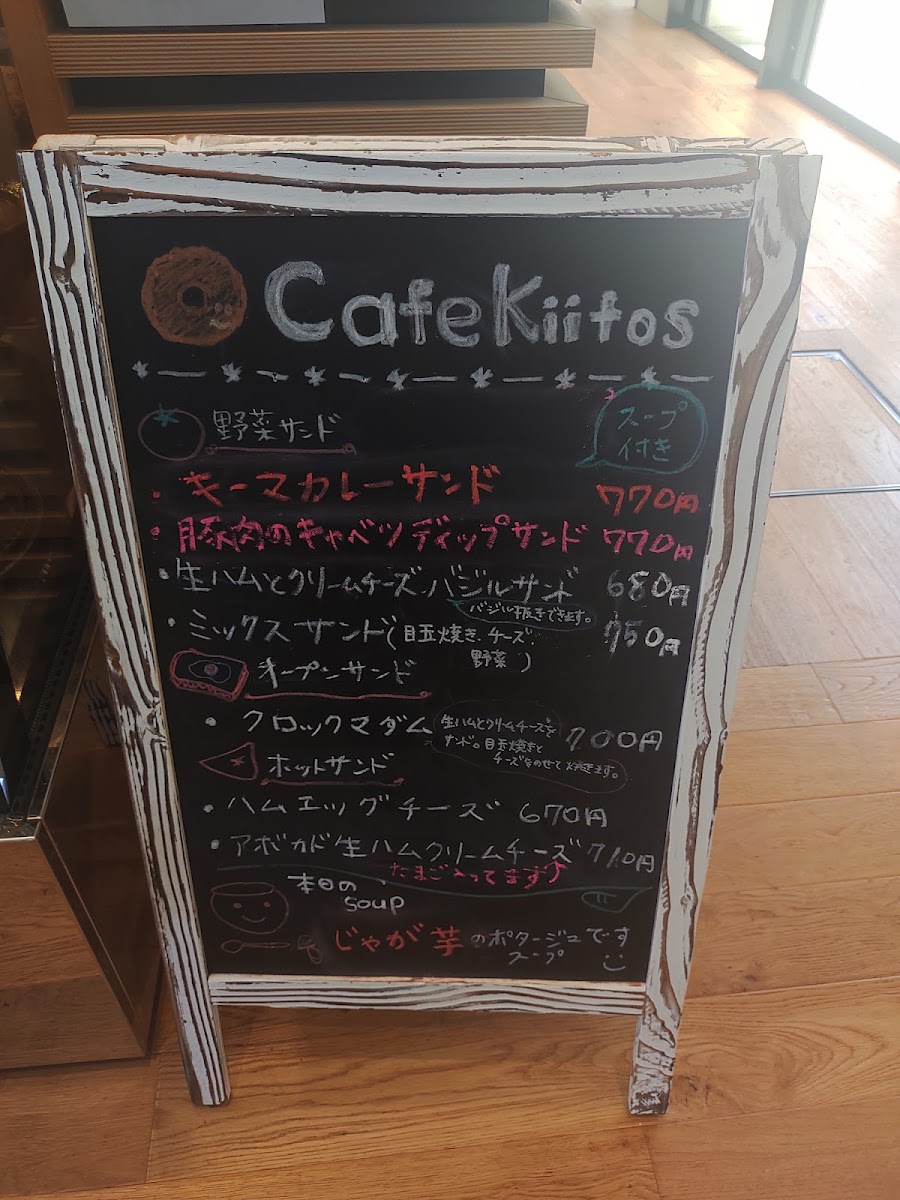 CafeKiitos
野菜サンド
スープ
付き
・キーマカレーサンド 770円
・豚肉のキャベツディップサンド 770円
・生ハムとクリームチーズバジルサンド 680円
バジル抜きできます。
・ミックスサンド(目玉焼き、チーズ、 750円
野菜)
オープンサンド
・クロックマダム 700円
生ハムとクリームチーズを
サンド。目玉焼きと
チーズをのせて焼きます。
ホットサンド
・ハムエッグチーズ 670円
・アボカド生ハムクリームチーズ 710円
たまご入ってます↑
本日の
soup
じゃが芋のポタージュです
スープ